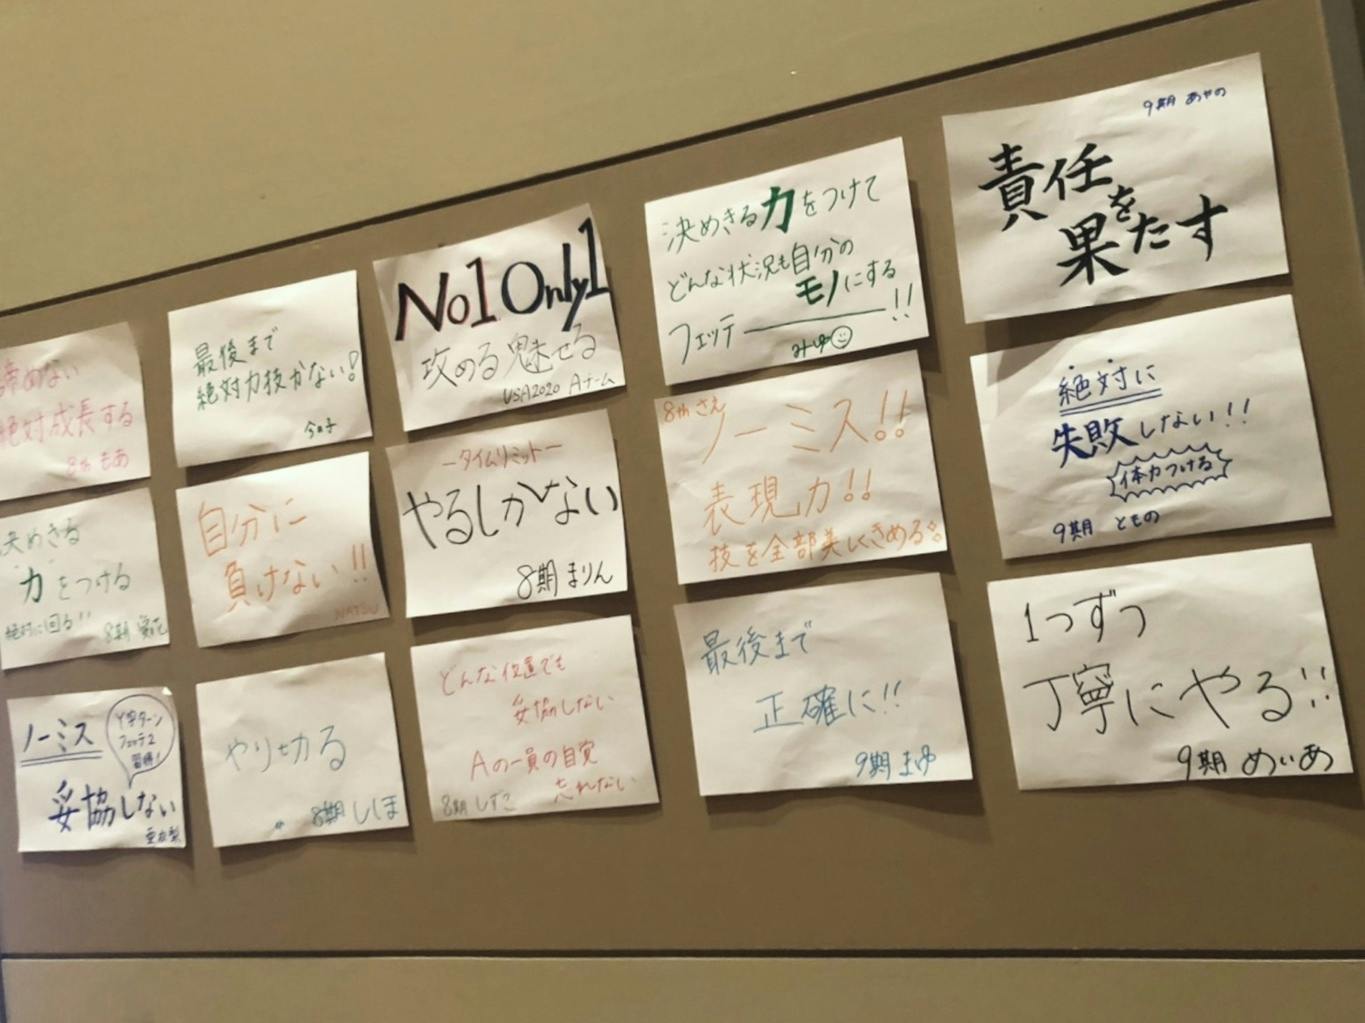 諦めない
絶対成長する
8th もあ
決めきる
力をつける
絶対に回る!!
8期 愛花
ノーミス
Y字ターン
フェッテ2
習得!
妥協しない
最後まで
絶対力技かない!
自分に
負けない!!
NATSU
やり切る
8期 ししま
No1 Only1
攻める 魅せる
USA2020 Aチーム
―タイムリミット―
やるしかない
8期 まりん
どんな位置でも
妥協しない
Aの一員の自覚
忘れない
8期 しずこ
決めきる力をつけて
どんな状況も自分の
モノにする
フェッテ―!!
みゆ
8th さえ
ノーミス!!
表現力!!
技を全部美しくきめる
最後まで
正確に!!
9期 まゆ
9期 あやの
責任を
果たす
絶対に
失敗しない!!
体力つける
9期 ともの
1つずつ
丁寧にやる!!
9期 めいあ